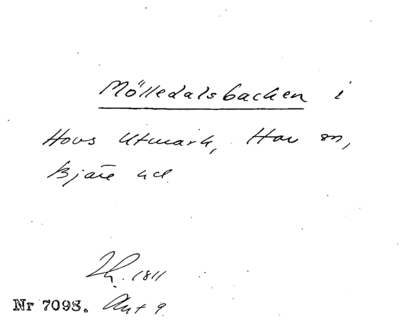 Mölledalsbacken i
Hovs Utmark, Hov sn,
Bjäre hd.
1811
Nr 7098. Akt 9